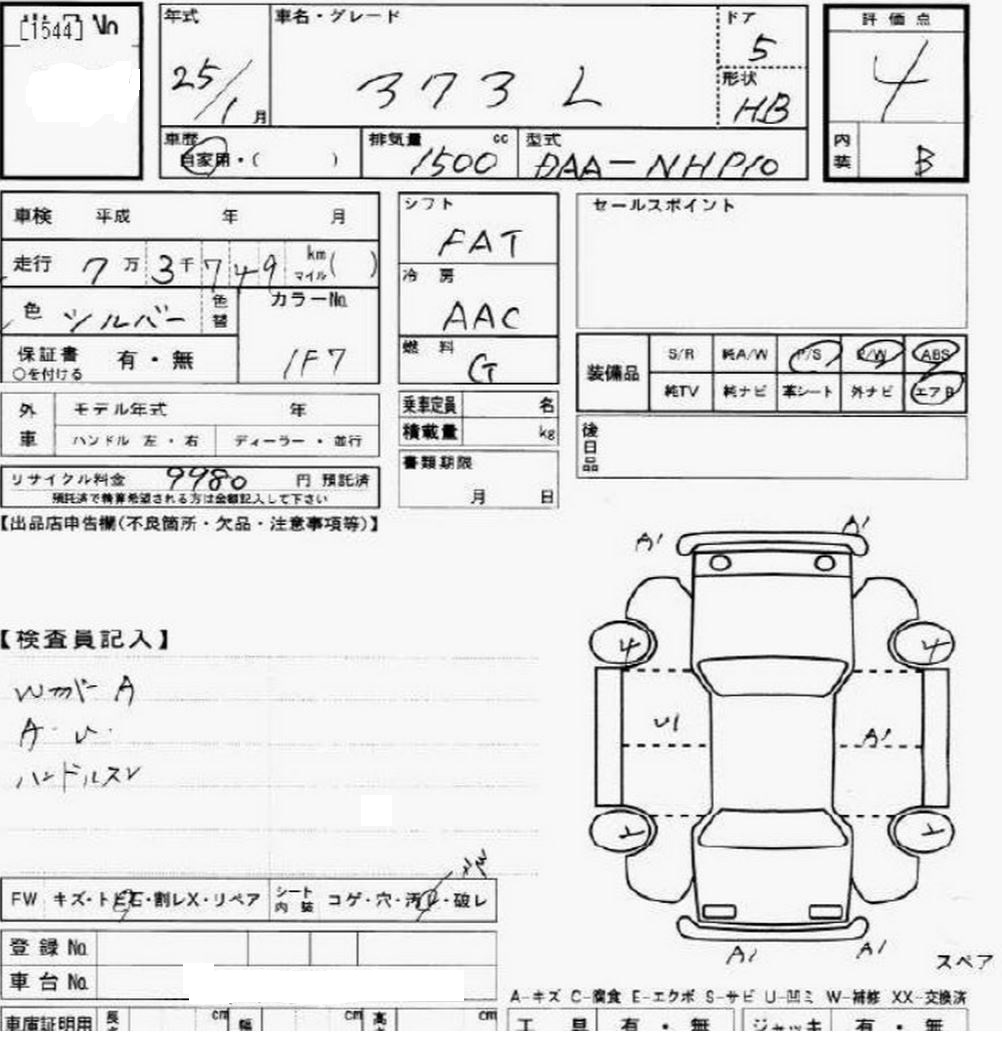 [1544] No
年式 車名・グレード ドア 評価点
25/1月 373 L 5 4
形状
HB
車歴 排気量 cc 型式 内装
自家用・( ) 1500 DAA-NHP10 B
車検 平成 年 月
走行 7万3千749 km マイル( )
色 シルバー 色替 カラーNo.
1F7
保証書 有・無
○を付ける
外車 モデル年式 年
ハンドル 左・右 ディーラー・並行
リサイクル料金 9980 円 預託済
預託済で精算希望される方は金額記入して下さい
シフト
FAT
冷房
AAC
燃料
G
乗車定員 名
積載量 kg
書類期限
月 日
セールスポイント
装備品 S/R 純A/W P/S P/W ABS
純TV 純ナビ 革シート 外ナビ エアB
後日品
【出品店申告欄(不良箇所・欠品・注意事項等)】
【検査員記入】
A・U・
ハンドルスレ
A1 A1
4 4
U1 A1
A1 A1
スペア
FW キズ・トビ石・割レX・リペア シート内装 コゲ・穴・汚レ・破レ
登録No.
車台No.
車庫証明用 長 cm 幅 cm 高 cm
A-キズ C-腐食 E-エクボ S-サビ U-凹ミ W-補修 XX-交換済
工具 有・無 ジャッキ 有・無